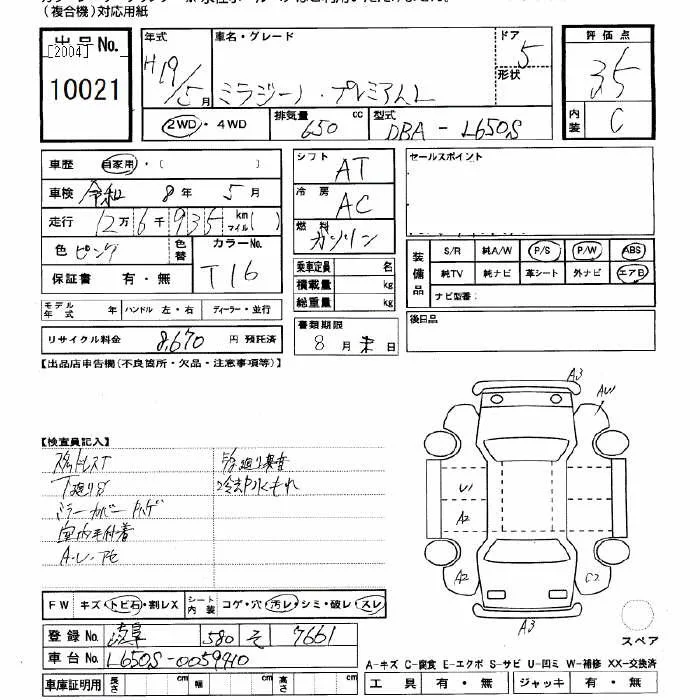 (複合機)対応用紙
出品No.
[2004]
10021
年式
H19/5月
車名・グレード
ミラジーノ・プレミアムL
ドア
5
形状
評価点
3.5
内装
C
2WD・4WD
排気量
650 cc
型式
DBA - L650S
車歴 自家用・( )
車検 令和 8年 5月
走行 12万6千935 km マイル( )
色 ピンク
色替
カラーNo.
T16
保証書 有・無
モデル年式 年
ハンドル 左・右
ディーラー・並行
リサイクル料金 8,670 円 預託済
シフト
AT
冷房
AC
燃料
ガソリン
乗車定員 名
積載量 kg
総重量 kg
書類期限
8月末日
セールスポイント
装備品
S/R 純A/W P/S P/W ABS
純TV 純ナビ 革シート 外ナビ エアB
ナビ型番:
後日品
【出品店申告欄(不良箇所・欠品・注意事項等)】
【検査員記入】
スタッドレスT
下廻りS
ミラーカバーハゲ
室内毛付着
A・U・他
冷却水もれ
A3
AW
U1
A2
A2
C2
A3
スペア
FW キズ・トビ石・割レX
シート内装 コゲ・穴・汚レ・シミ・破レ・スレ
登録No. 岐阜 580 そ 7661
車台No. L650S-0059910
車庫証明用 長さ cm 幅 cm 高さ cm
A-キズ C-腐食 E-エクボ S-サビ U-凹ミ W-補修 XX-交換済
工具 有・無 ジャッキ 有・無